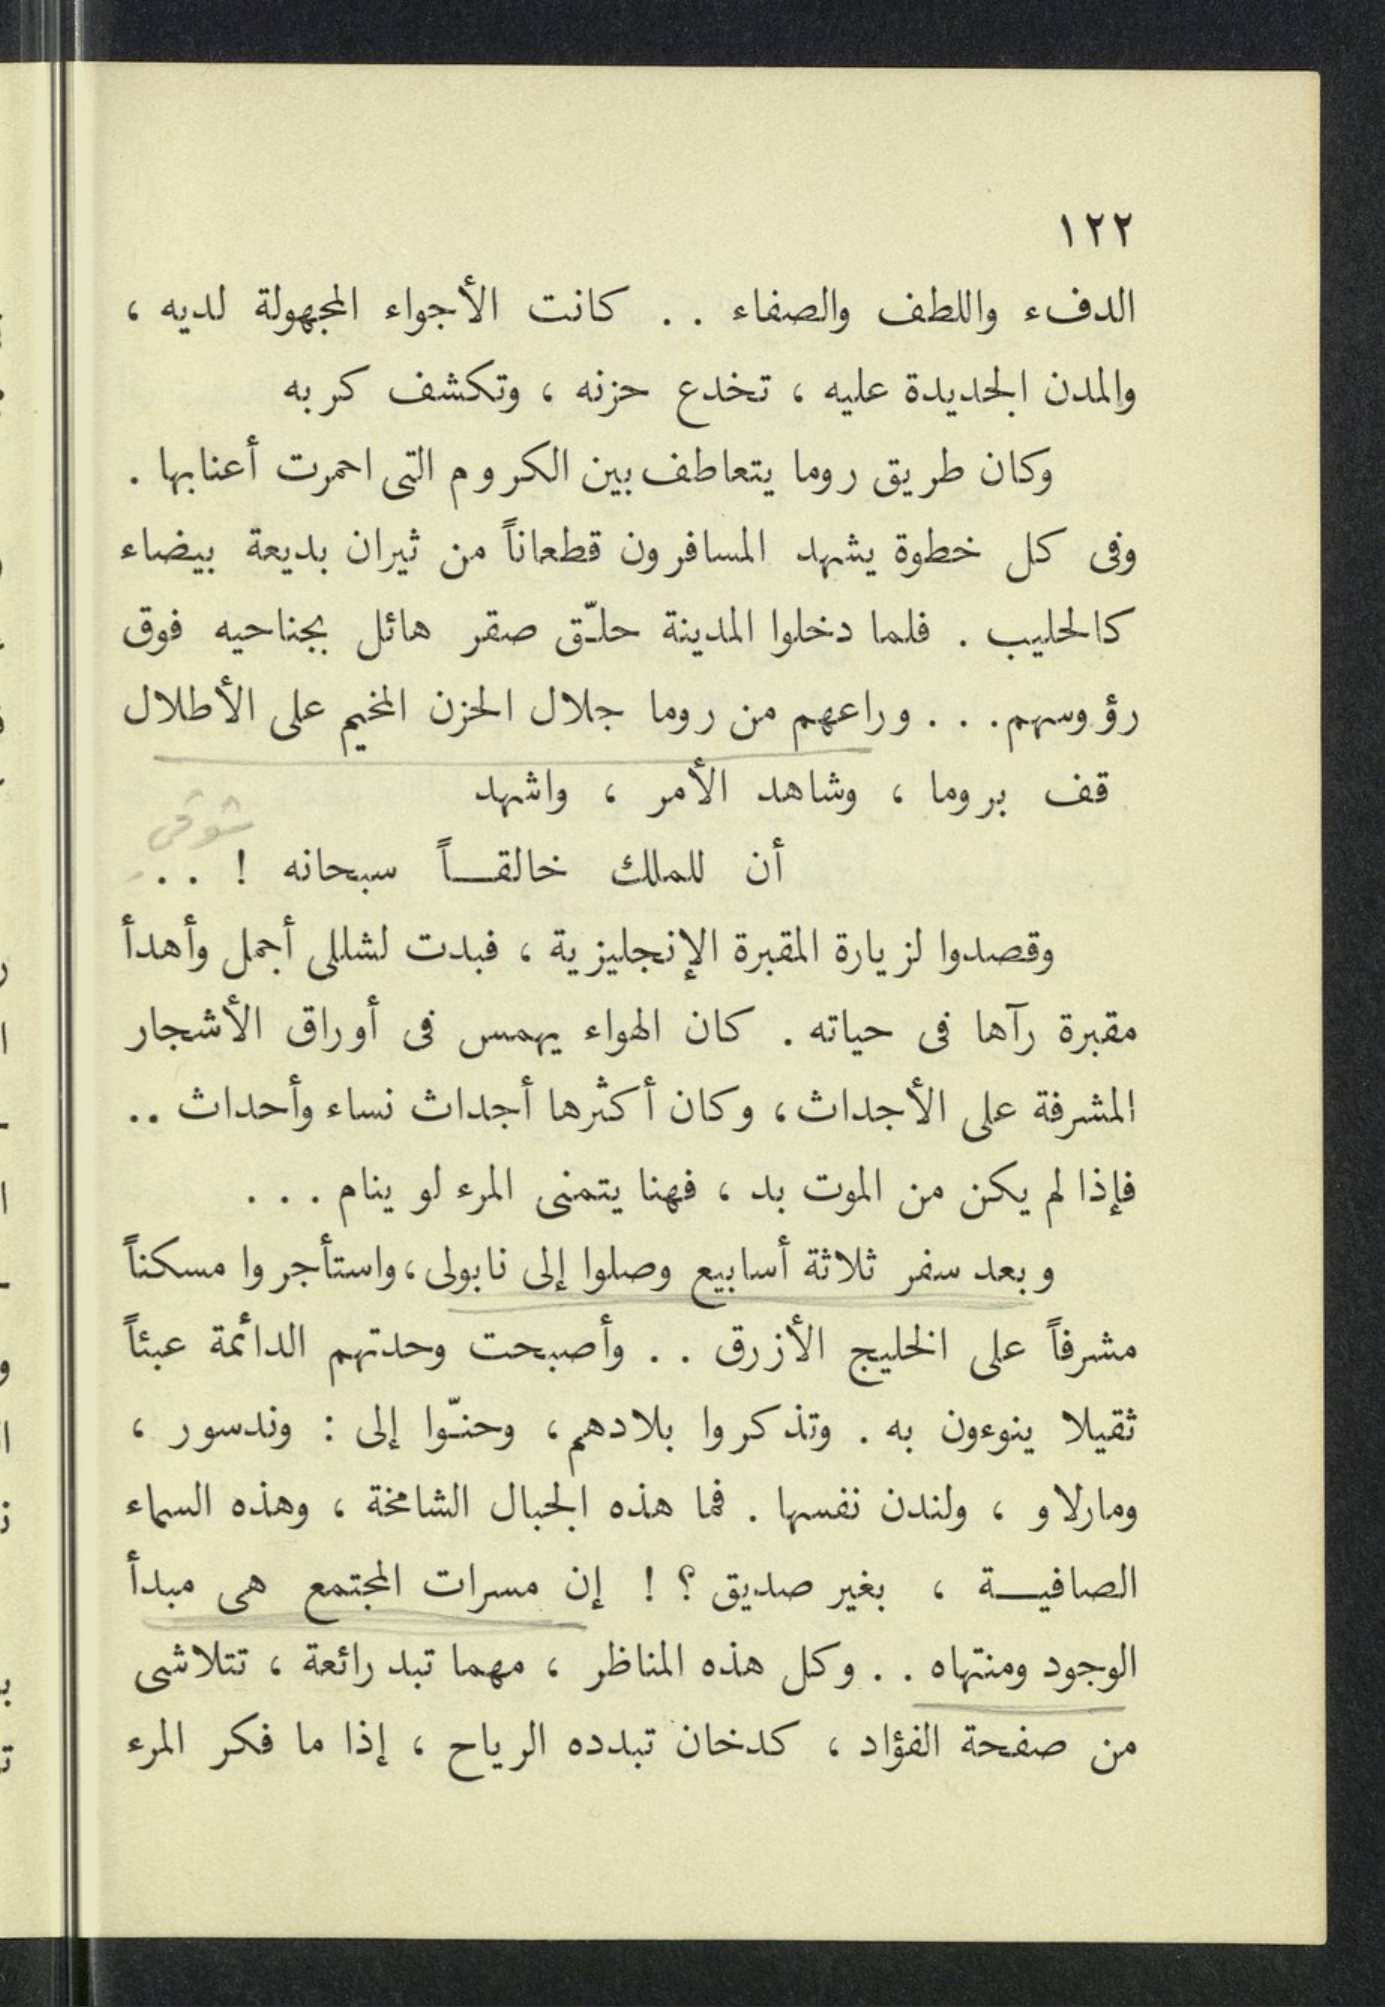 ١٢٢
الدفء واللطف والصفاء . . كانت الأجواء المجهولة لديه ،
والمدن الجديدة عليه ، تخدع حزنه ، وتكشف كربه
وكان طريق روما يتعاطف بين الكروم التى احمرت أعنابها .
وفى كل خطوة يشهد المسافرون قطعاناً من ثيران بديعة بيضاء
كالحليب . فلما دخلوا المدينة حلّق صقر هائل بجناحيه فوق
رؤوسهم . . . وراعهم من روما جلال الحزن المخيم على الأطلال
قف بروما ، وشاهد الأمر ، واشهد
شوقى
أن للملك خالقـــاً سبحانه ! . .
وقصدوا لزيارة المقبرة الإنجليزية ، فبدت لشللى أجمل وأهدأ
مقبرة رآها فى حياته . كان الهواء يهمس فى أوراق الأشجار
المشرفة على الأجداث ، وكان أكثرها أجداث نساء وأحداث ..
فإذا لم يكن من الموت بد ، فهنا يتمنى المرء لو ينام . . .
وبعد سفر ثلاثة أسابيع وصلوا إلى نابولى ، واستأجروا مسكناً
مشرفاً على الخليج الأزرق . . وأصبحت وحدتهم الدائمة عبئاً
ثقيلا ينوءون به . وتذكروا بلادهم ، وحنّوا إلى : وندسور ،
ومارلاو ، ولندن نفسها . فما هذه الجبال الشامخة ، وهذه السماء
الصافيـــة ، بغير صديق ؟ ! إن مسرات المجتمع هى مبدأ
الوجود ومنتهاه . . وكل هذه المناظر ، مهما تبد رائعة ، تتلاشى
من صفحة الفؤاد ، كدخان تبدده الرياح ، إذا ما فكر المرء